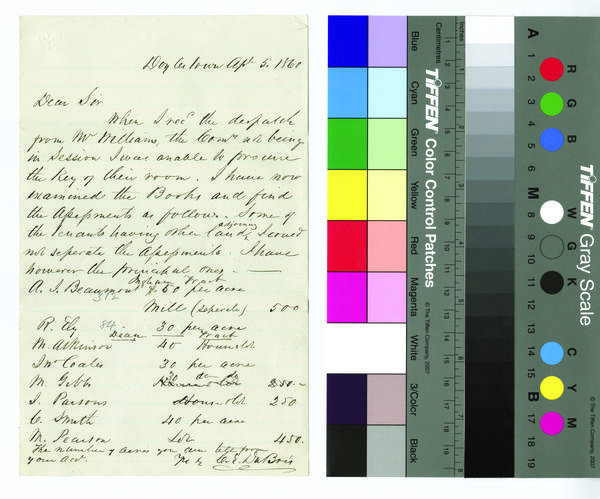 Doylestown Apl 5. 1860
Dear Sir
When I recd the despatch
from Mr Williams, the Comrs not being
in Session I was unable to procure
the Key of their room. I have now
examined the Books and find
the Assessments as follows. Some of
the Tenants having other adjoining land, I could
not seperate the Assessments. I have
however the principal ones. —
Tract
A. I. Beaumont 50 per acre
312
Mill (seperate) 500
R. Ely 84 30 per acre
Dean Tract
M. Atkinson 40
Jno Coates 30 per acre
M. Gibbs 30 do do 250.-
J. Parsons House & lot 250
C. Smith 40 per acre
M. Pearson Lot 450.
The number of acres you can take from
your act. Yrs &c C. E. DuBois
Blue
Cyan
Green
Yellow
Red
Magenta
White
3/Color
Black
Centimetres
Inches
TIFFEN Color Control Patches
© The Tiffen Company, 2007
A 1 2 3 4 5 6 M 8 9 10 11 12 13 14 15 B 17 18 19
R G B
W G K
C Y M
TIFFEN Gray Scale
© The Tiffen Company, 2007